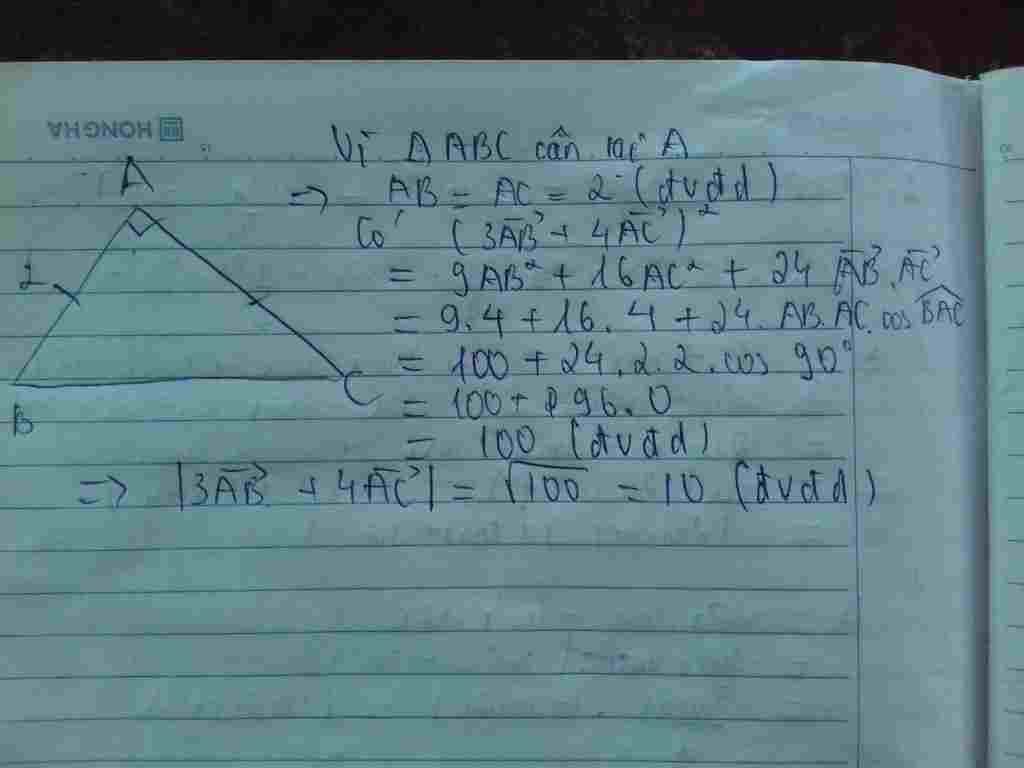 HONG HA
Vì Δ ABC cân tại A
A
=> AB = AC = 2 (đvđd)
Có (3AB→ + 4AC→)²
2
= 9AB² + 16AC² + 24 AB→.AC→
= 9.4 + 16.4 + 24. AB. AC. cos BAC
= 100 + 24.2.2.cos 90°
B
C
= 100 + 96.0
= 100 (đvđd)
=> |3AB→ + 4AC→| = √100 = 10 (đvđd)